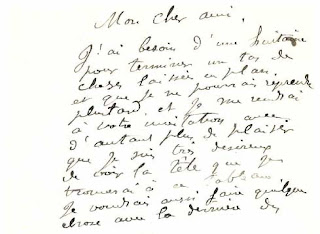 Mon cher ami,
J'ai besoin d'une huitaine
pour terminer un tas de
choses laissées en plan
et que je ne pourrais reprendre
plus tard, et je me rendrai
à votre invitation avec
d'autant plus de plaisir
que je suis très désireux
de voir la tête que je
trouverai à ce tableau
Je voudrais aussi faire quelque
chose avec la dernière des